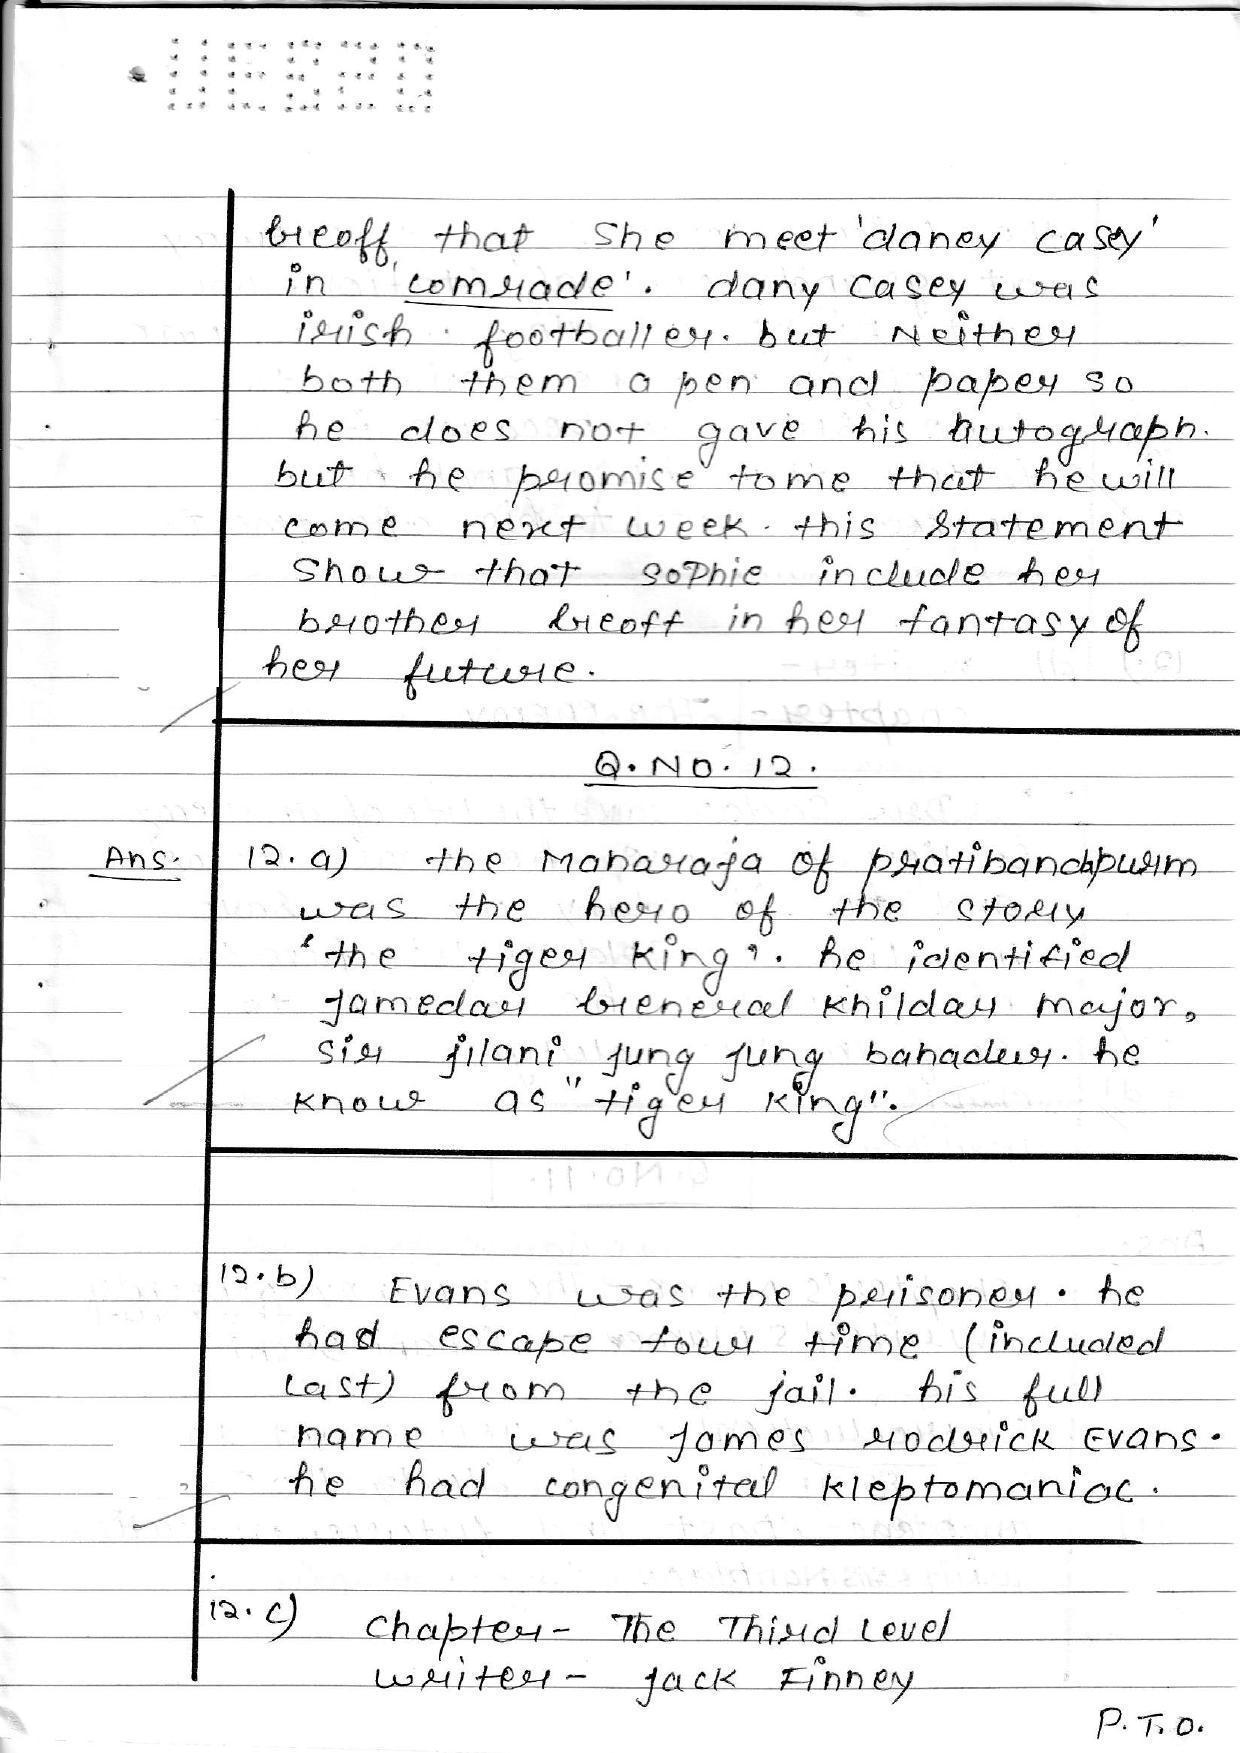 Geoff, that she meet 'daney casey'
in 'comrade'. dany casey was
irish footballer. but Neither
both them a pen and paper so
he does not gave his autograph.
but he promise to me that he will
come next week. this statement
show that sophie include her
brother Geoff in her fantasy of
her future.
Q. NO. 12.
Ans. 12. a) the Maharaja of pratibandapurim
was the hero of the story
'the tiger king'. he identified
jamedar General khildar major,
sir jilani jung jung bahadur. he
know as "tiger king".
12. b) Evans was the prisoner. he
had escape four time (included
last) from the jail. his full
name was james rodrick Evans.
he had congenital kleptomaniac.
12. c) chapter- The Third Level
writer- jack Finney
P. T. O.